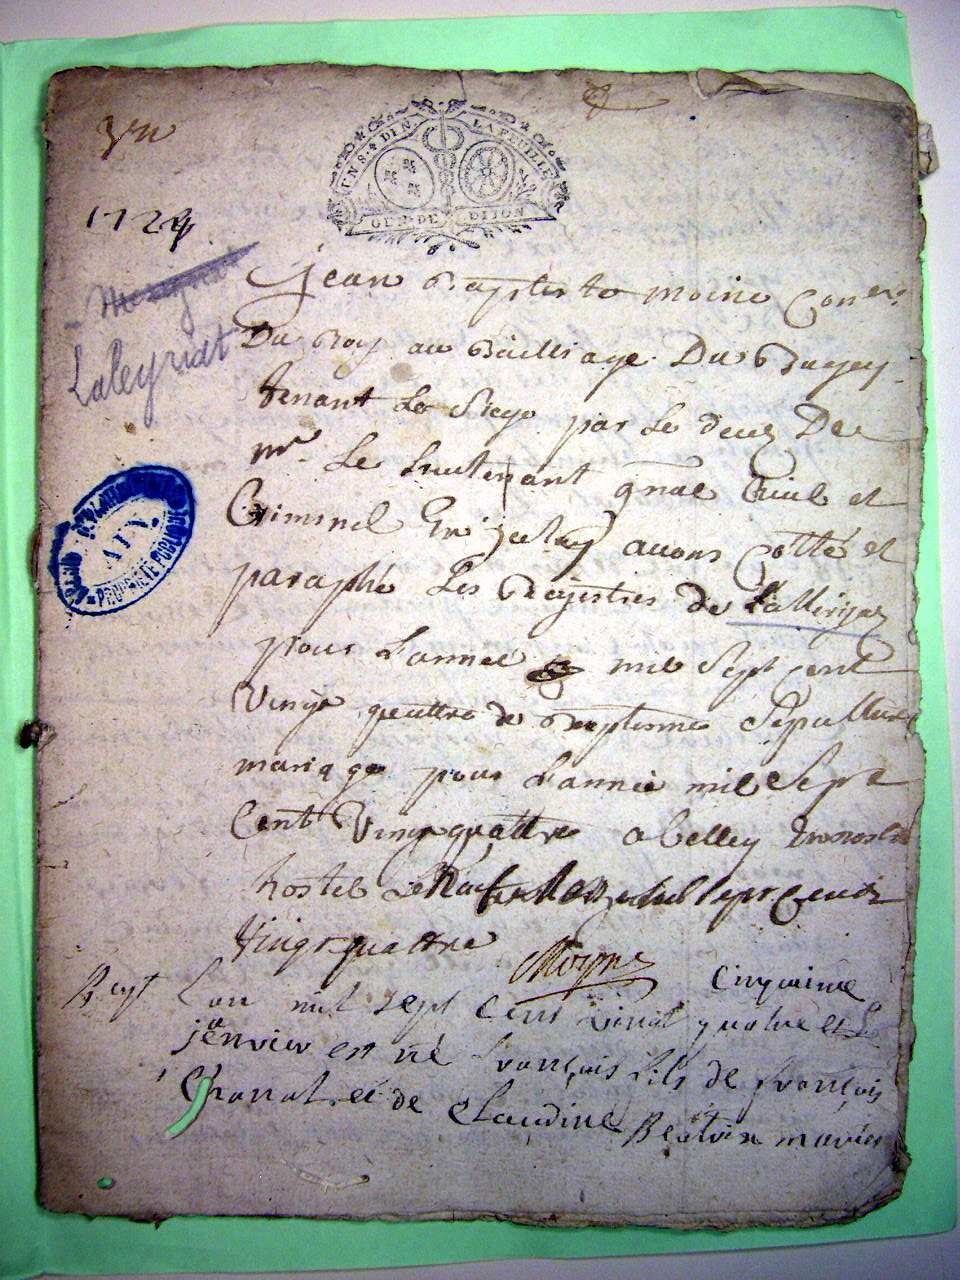 UN S. 4 DEN. LA FEUILLE
GEN. DE DIJON
1724
Laleyriat
AIN
PROPRIÉTÉ PUBLIQUE
jean Baptiste moine Coner
Du Roy au Bailliage Du Bugey
tenant Le Siege par Le deces De
mr Le Lieutenant gnal Ciuil et
Criminel auons Cotté et
paraphé Les Registres de Lalleriaz
pour Lanneé mil Sept Cent
Vingt quattre de Baptesme Sepulture
mariage pour Lanneé mil Sept
Cent Vingt quattre a belley En nostre
hostel Le mil sept Cent
Vingt quattre Moyne
Bapt Lan mil sept cens vingt quatre et Le cinquieme
janvier est né françois fils de françois
Chanal et de Claudine mariés